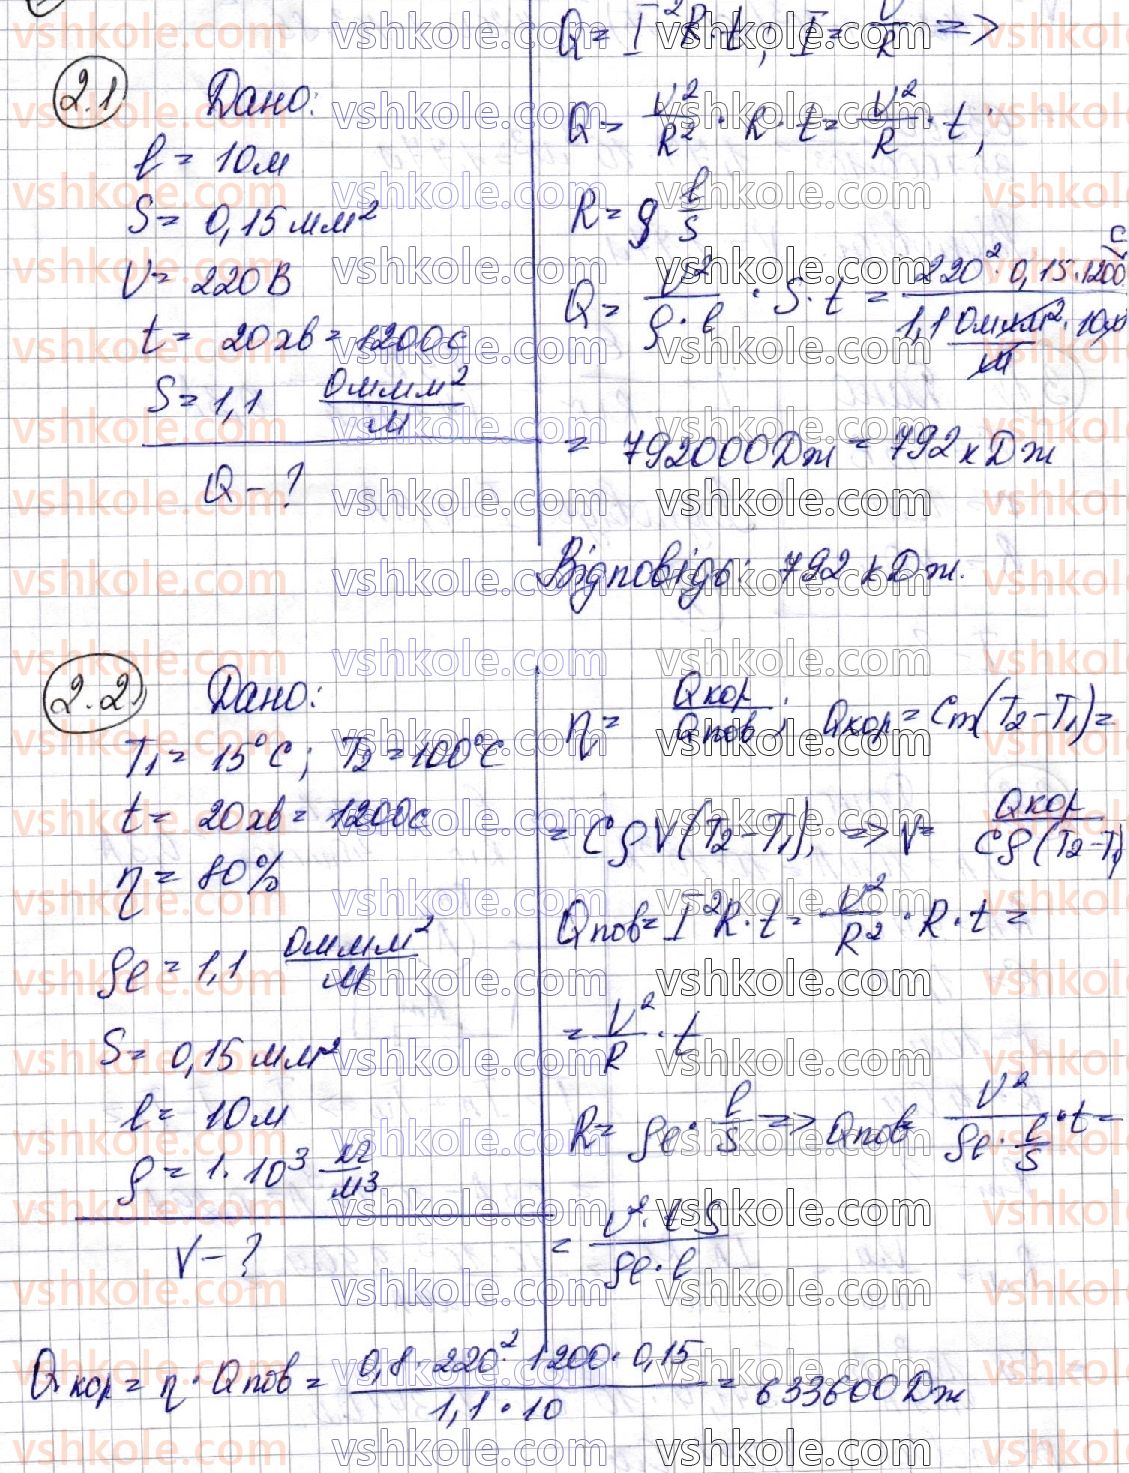 2.1 Дано:
l = 10м
S = 0,15 мм²
U = 220В
t = 20хв = 1200с
S = 1,1 Ом мм²/м
Q - ?
Q = I²R·t; I = U/R =>
Q = U²/R² · R · t = U²/R · t;
R = ρ l/S
Q = U²/(ρ·l) · S · t = (220² · 0,15 · 1200с)/(1,1 Ом мм²/м · 10м)
= 792000 Дж = 792 кДж
Відповідь: 792 кДж.
2.2 Дано:
T₁ = 15°C; T₂ = 100°C
t = 20хв = 1200с
η = 80%
ρe = 1,1 Ом мм²/м
S = 0,15 мм²
l = 10м
ρ = 1·10³ кг/м³
V - ?
η = Qкор/Qпов; Qкор = Cm(T₂-T₁) =
= CρV(T₂-T₁); => V = Qкор/(Cρ(T₂-T₁))
Qпов = I²R·t = U²/R² · R · t =
= U²/R · t
R = ρe · l/S => Qпов = U²/(ρe · l/S) · t =
= (U²·t·S)/(ρe·l)
Qкор = η · Qпов = (0,8 · 220² · 1200 · 0,15)/(1,1 · 10) = 633600 Дж